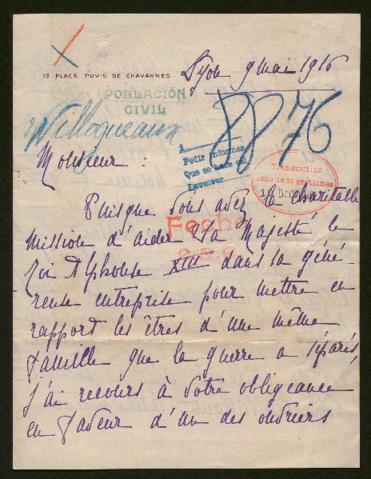 13 PLACE PUVIS DE CHAVANNES
Lyon 9 mai 1916
POBLACIÓN
CIVIL
Willoqueaux
8876
Monsieur :
A
Pedir informes
Que se hace en
Devolver
Transmítico
resultado gestiones
Puisque vous avez la charitable
mission d'aider Sa Majesté le
Fecha
Roi Alphonse XIII dans la géné-
reuse entreprise pour mettre en
rapport les êtres d'une même
famille que la guerre a séparés,
j'ai recours à votre obligeance
en faveur d'un des ouvriers